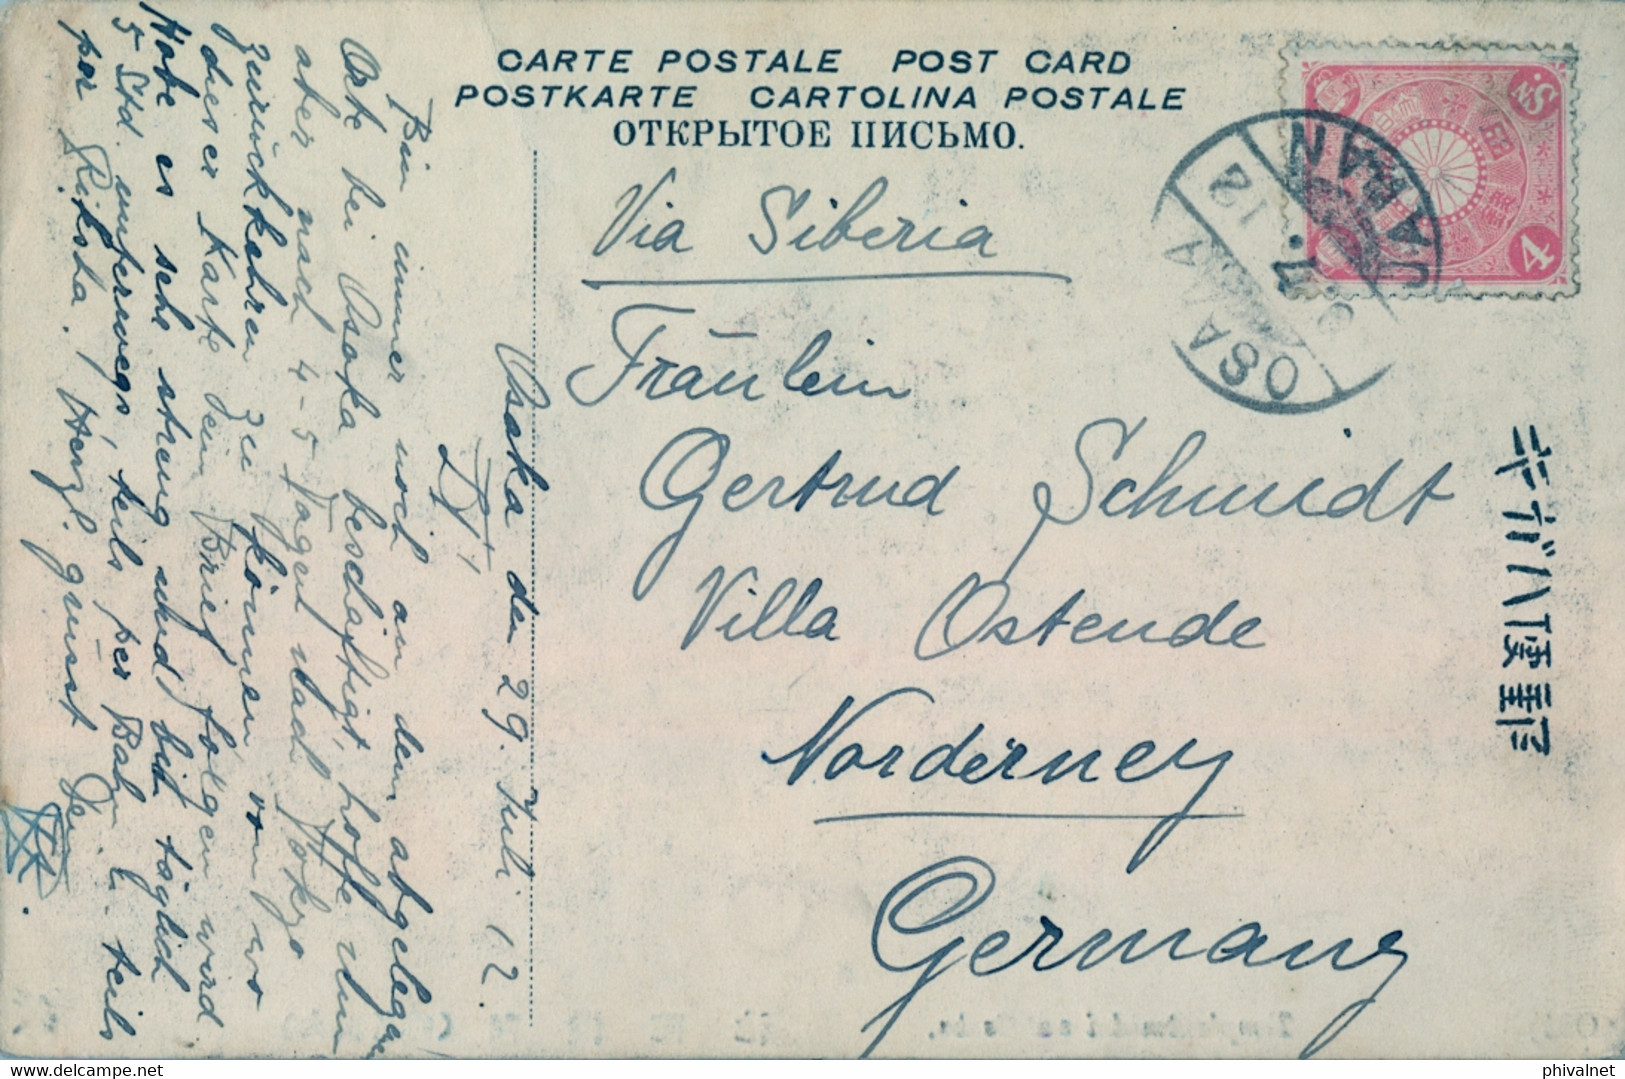 CARTE POSTALE POST CARD
POSTKARTE CARTOLINA POSTALE
ОТКРЫТОЕ ПИСЬМО.
Via Siberia
Fräulein
Gertrud Schmidt
Villa Ostende
Norderney
Germany
Osaka den 29. Juli 12.
Bin immer noch an dem abgelegen
Orte bei Osaka beschäftigt, hoffe nun
aber nach 4-5 Tagen nach Tokyo
zurückkehren zu können, von wo
dieser Karte ein Brief folgen wird
Habe es sehr streng und bin täglich
5 Std. unterwegs, teils per Bahn u. teils
per Riksha. Herzl. grüsst Dei
JAPAN
OSAKA
29.7.12
4
SN
郵便ハガキ
phivalnet